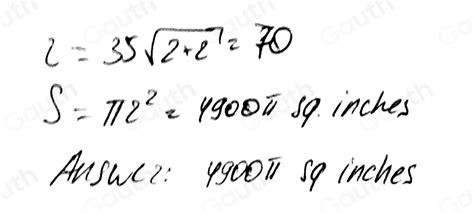 r = 35√2+2 = 70
S = πr² = 4900π sq. inches
Answer: 4900π sq inches